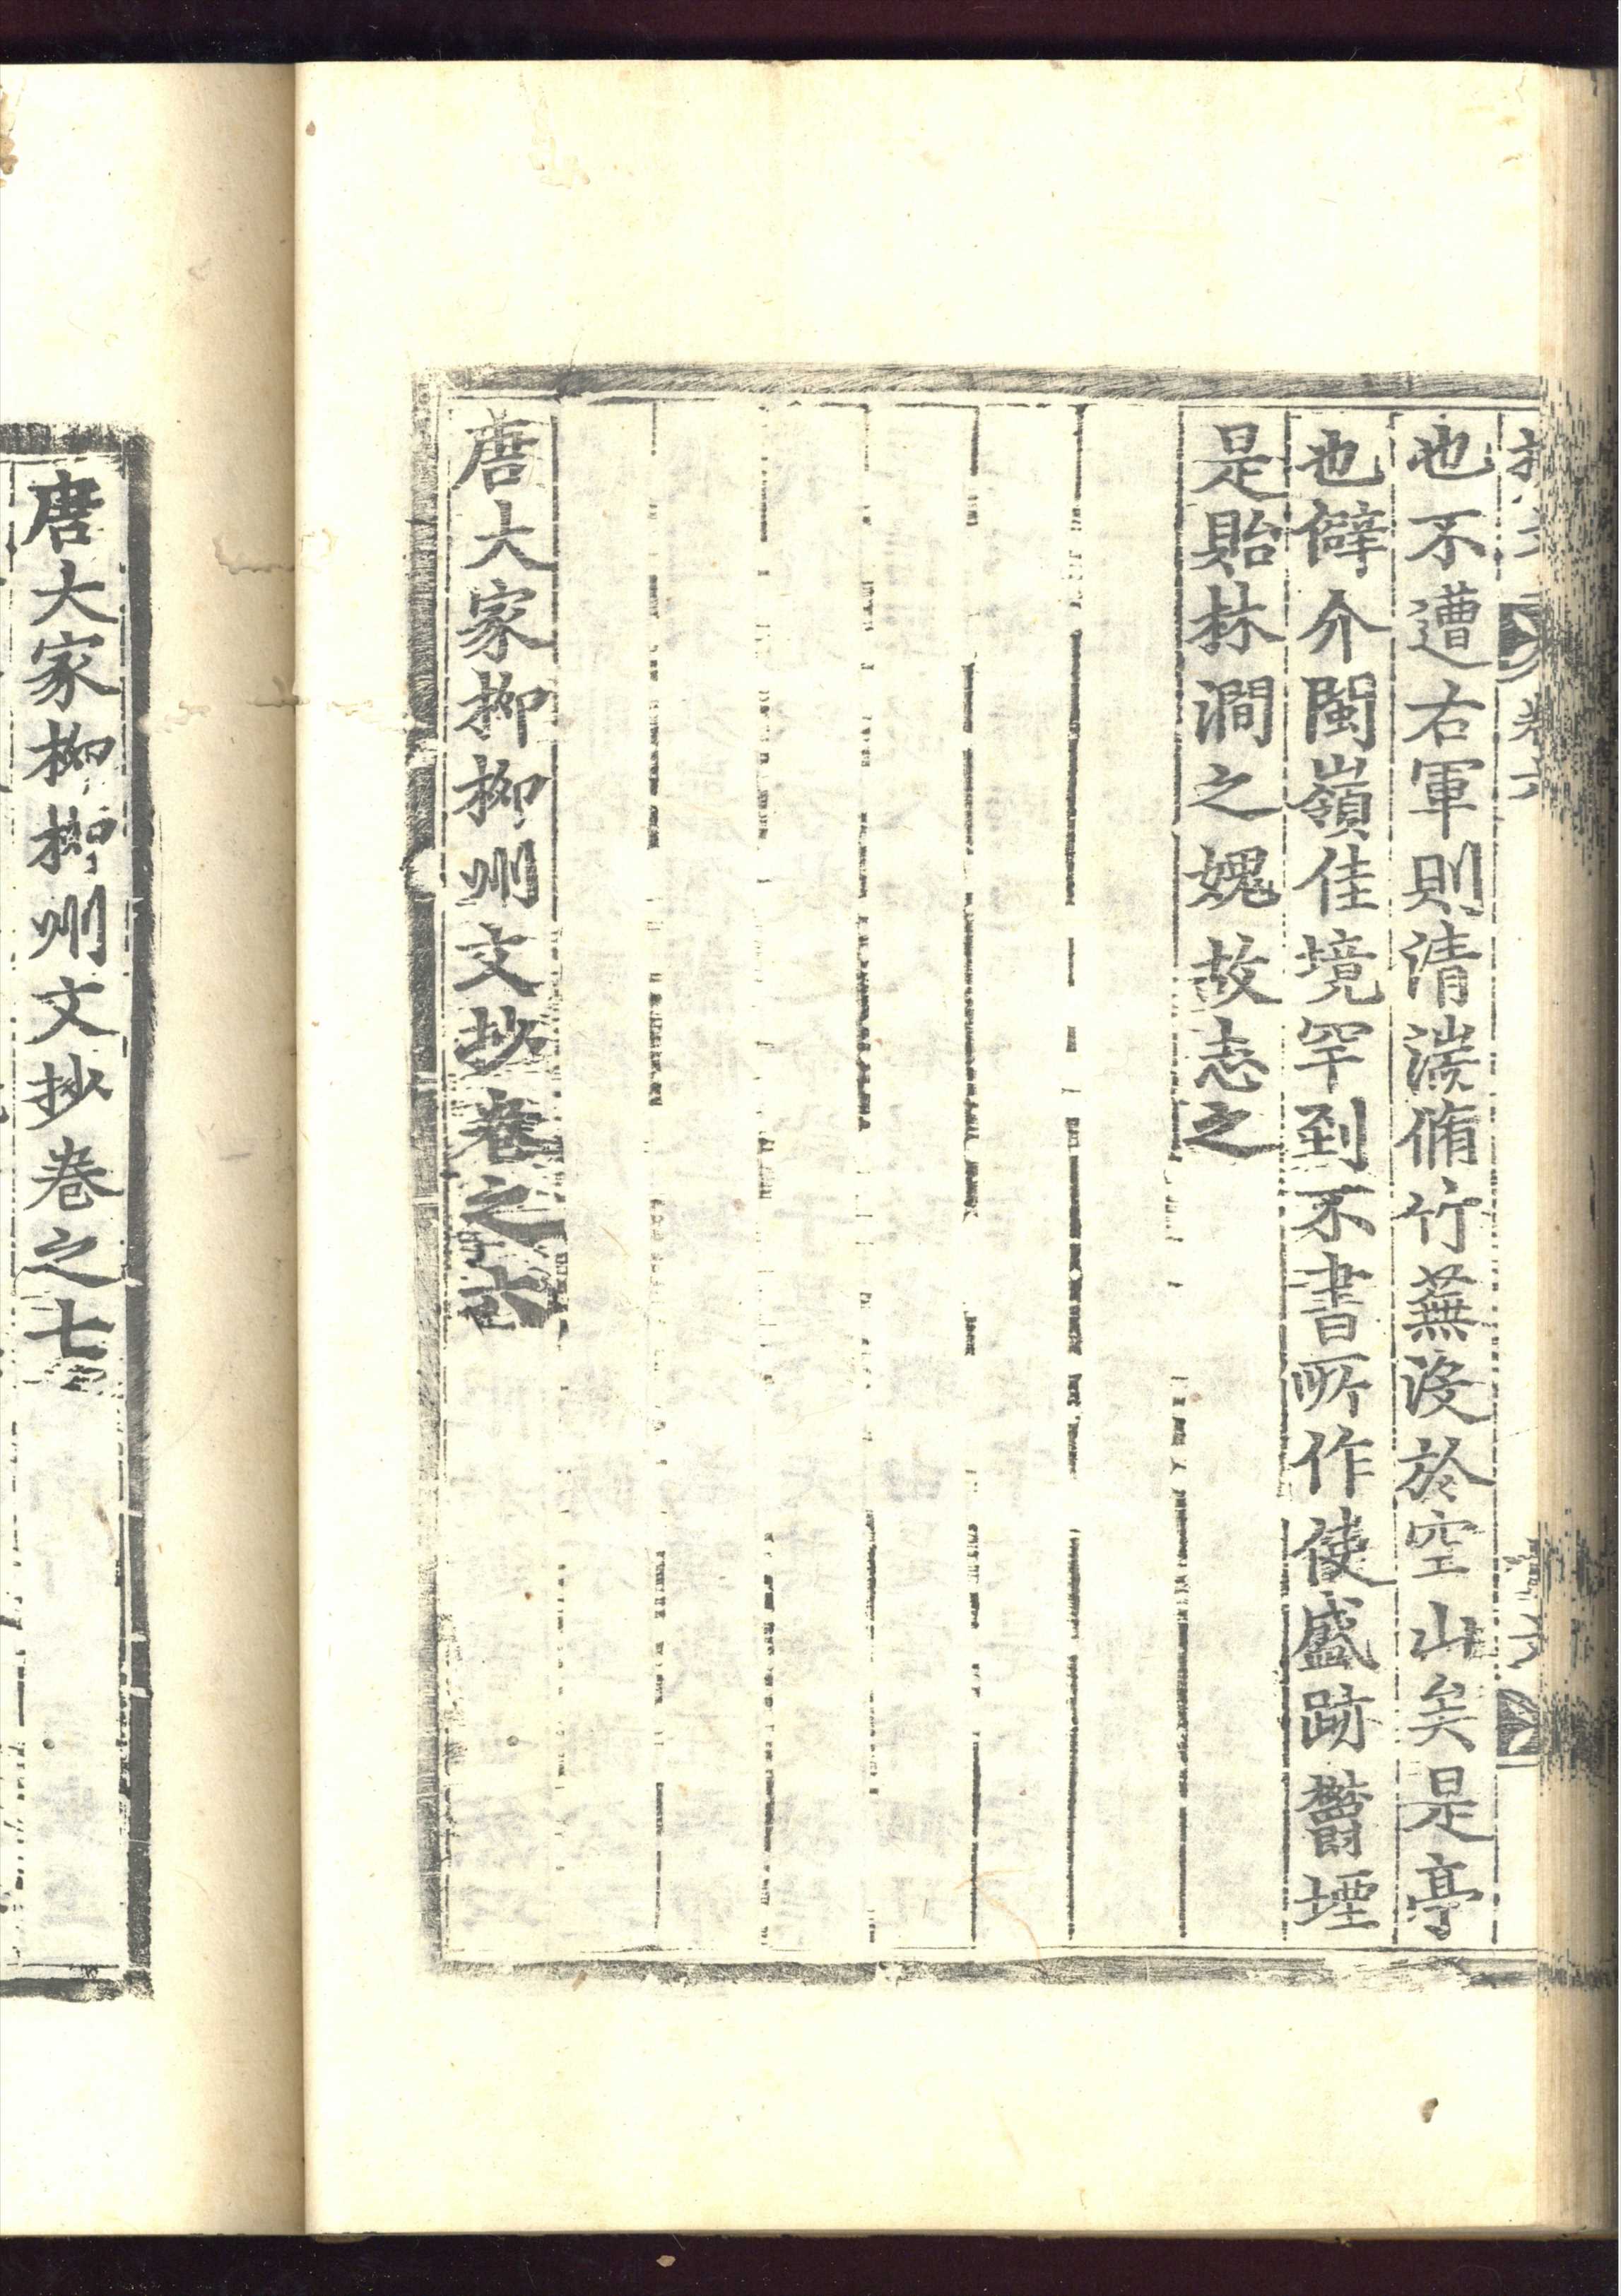 卷六
也不遭右軍則清湍脩竹蕪沒於空山矣是亭
也僻介閩嶺佳境罕到不書所作使盛跡鬱堙
是貽林澗之媿故志之
唐大家柳柳州文抄卷之六
唐大家柳柳州文抄卷之七